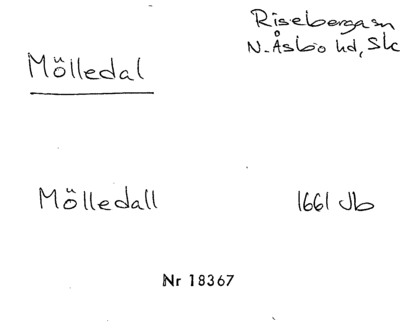 Riseberga sn
N. Åsbo hd, Sk
Mölledal
Mölledall 1661 Jb
Nr 18367